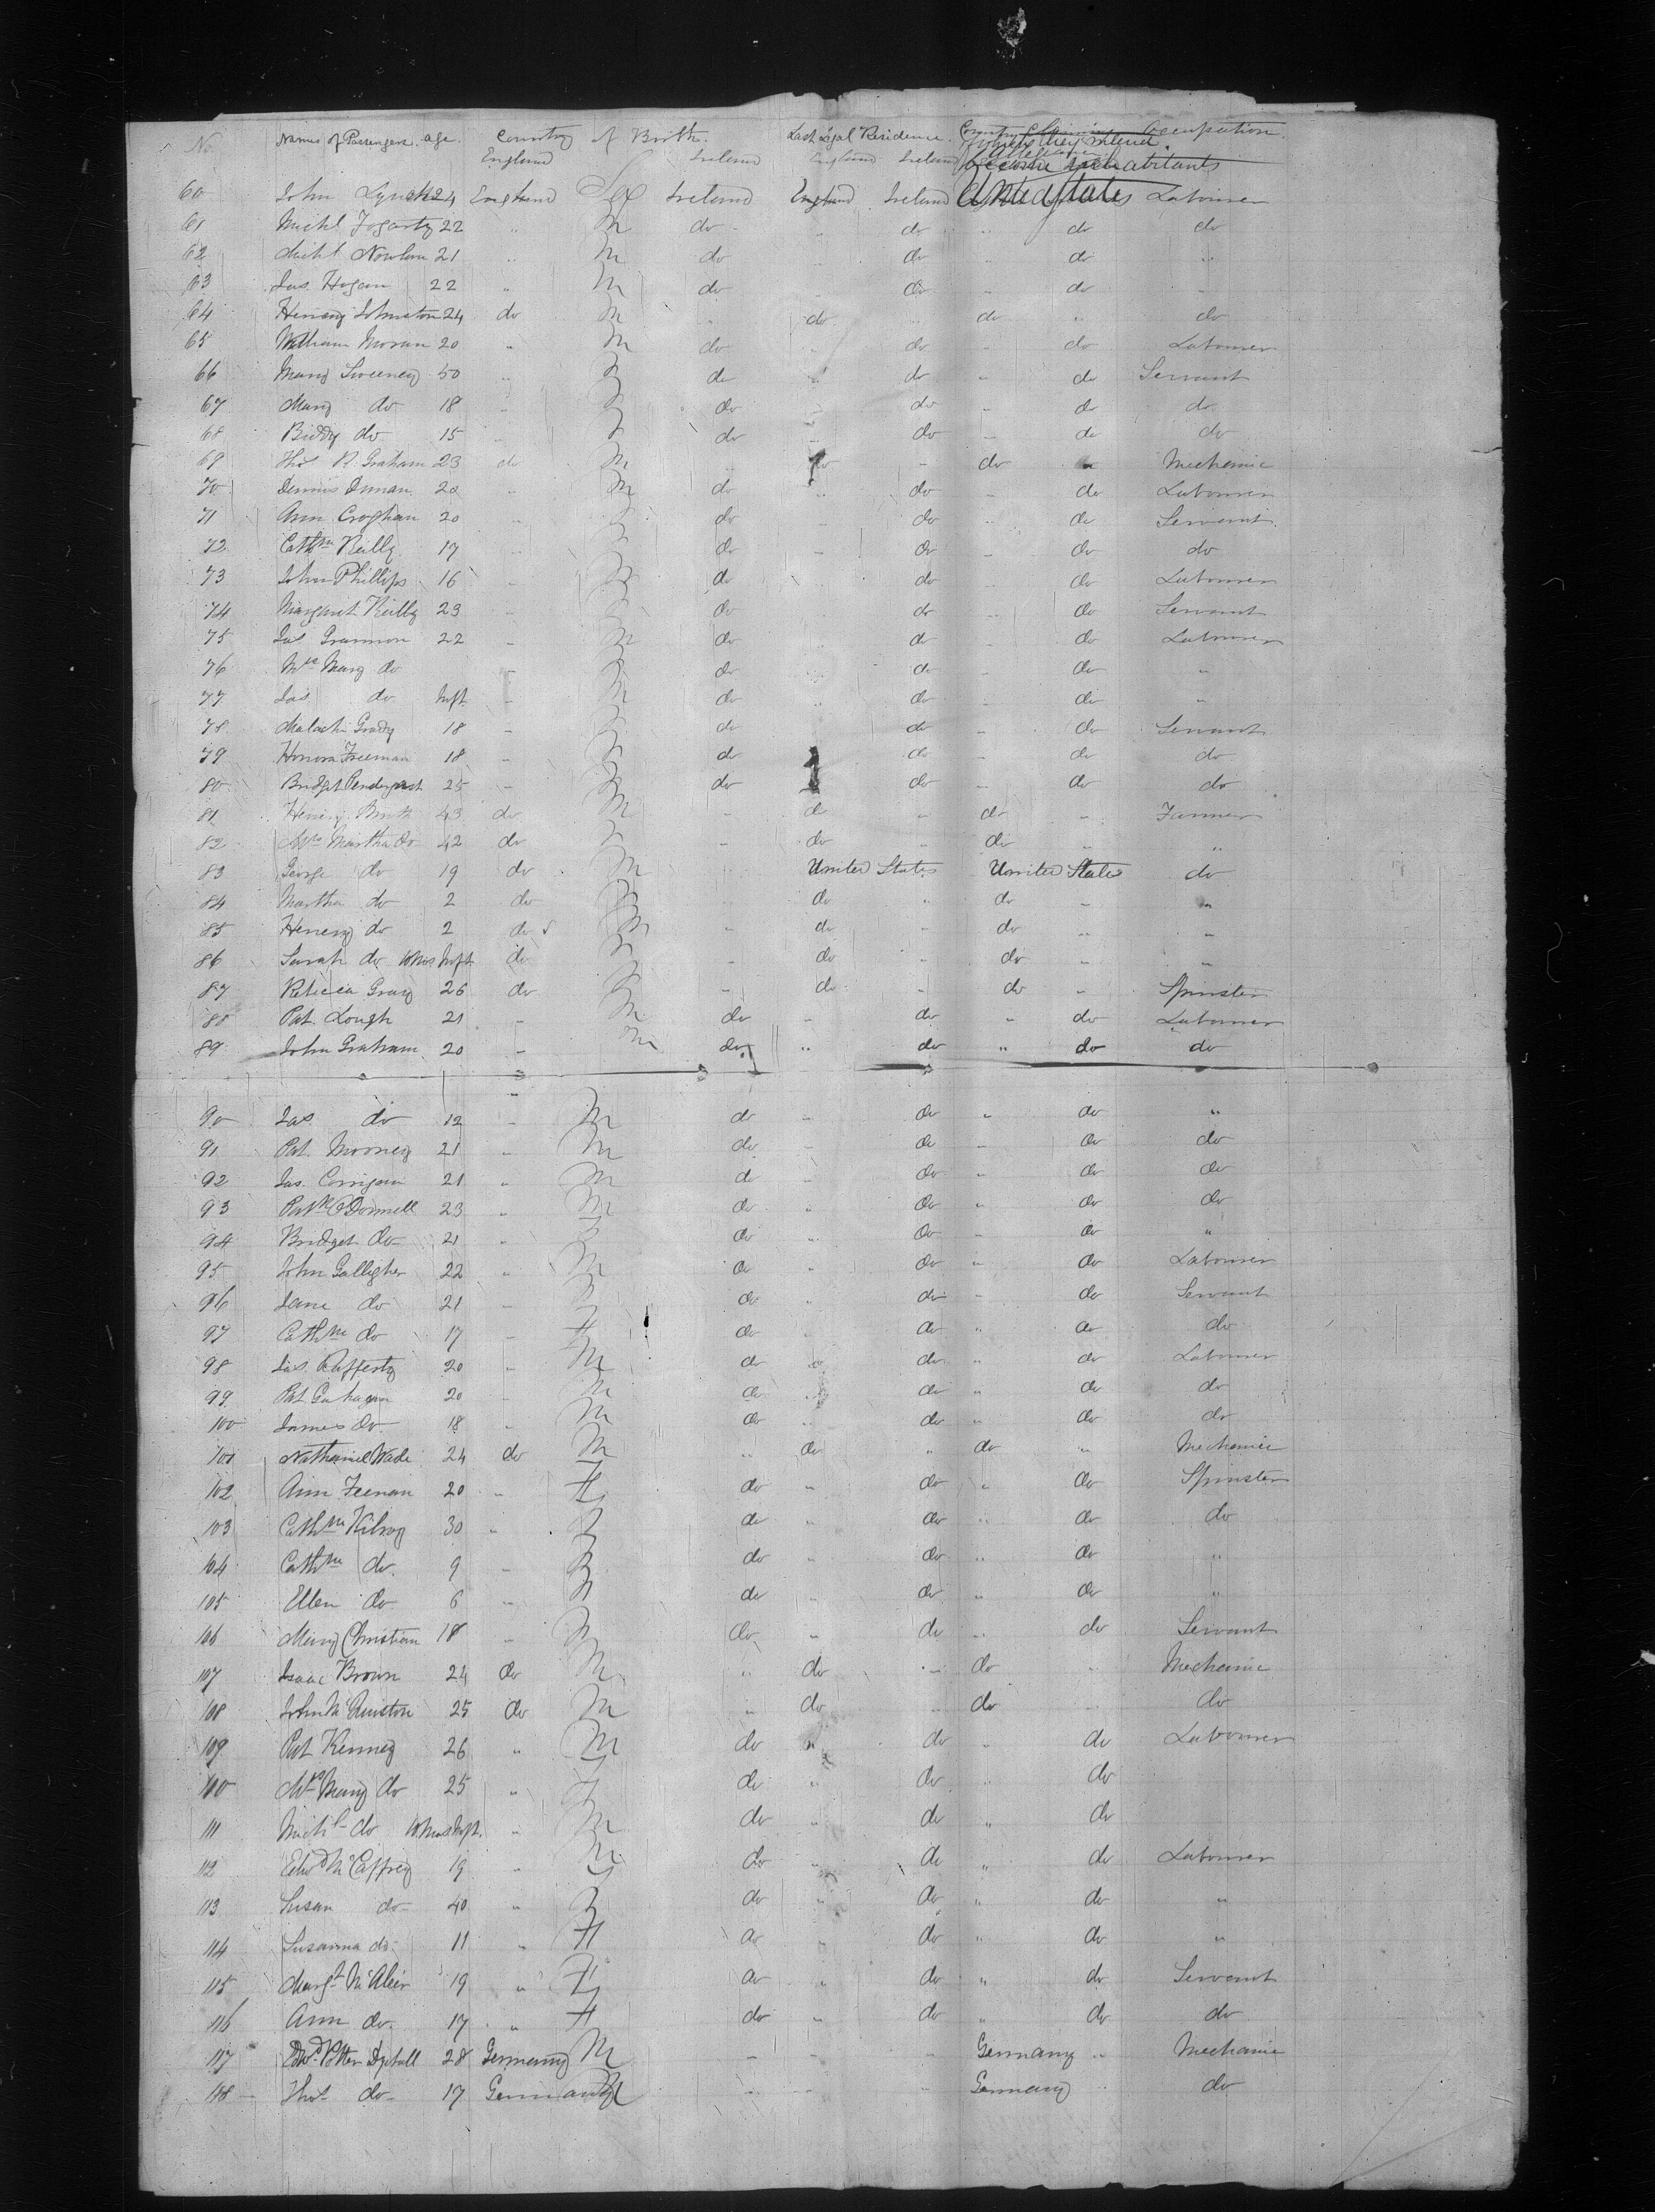 No. Names of Passengers. age. Country of Birth. Last Legal Residence. Country Occupation.
England Ireland England Ireland they intend
become inhabitants
60 John Lynch 24 England Sex Ireland England Ireland United States Labourer
61 Michl Fogarty 22 " M do " do " do do
62 Michl Nowlan 21 " M do do " do "
63 Jas. Hogan 22 " M do - do - do "
64 Heneny Johnston 24 do M " do " do " do
65 William Moran 20 " M do - do - do Labourer
66 Mary Sweeney 50 " F do " do - do Servant
67 Mary do 18 - F do - do - do do
68 Biddy do 15 - F do - do - do do
69 Thos R. Graham 23 do M " do - do " Mechanic
70 Dennis 20 " M do " do - do Labourer
71 Ann Croghan 20 " F do - do " do Servant
72 Cathne Reilly 17 - F do - do - do do
73 John Phillips 16 - M do do - do Labourer
74 Margaret Reilly 23 - F do do - do Servant
75 Jas Grannon 22 - M do do - do Labourer
76 Mrs Mary do - F do do - do "
77 Jas do Inft - M do " do - do "
78 Malachi Grady 18 - do do - do Servant
79 Honora Freeman 18 - F do do - do do
80 Bridget Pendergast 25 - do do - do do
81 Heneny 43 do M - do " do " Farmer
82 Mrs Martha do 42 do F - do " do " "
83 George do 19 do M United States United States do
84 Martha do 2 do F do " do - "
85 Heneny do 2 do M - do - do " "
86 Sarah do 10 Mos Inft do F - do - do "
87 Gray 26 do F - do - do " Spinster
88 Pat. Lough 21 - M do - do " do Labourer
89 John Graham 20 - M do " do " do do
90 Jas do 12 - M do - do " do "
91 Pat. Mooney 21 " M do - do - do do
92 Jas. Corrigan 21 " M do - do " do do
93 Patk O'Donnell 23 " M do " do " do do
94 Bridget do 21 " F do " do - do "
95 John Galligher 22 " M do " do " do Labourer
96 Jane do 21 - F do " do - do Servant
97 Cathne do 17 - F do " do " do do
98 Jas Rafferty 20 " M do do " do Labourer
99 Pat Gahagan 20 - M do do " do do
100 James do 18 " M do " do " do do
101 Nathaniel Wade 24 do M " do " do " Mechanic
102 Ann Feenan 20 - F do " do " do Spinster
103 Cathne Kilroy 30 " F do " do " do do
104 Cathne do. 9 - F do " do " do "
105 Ellen do 6 " F do " do " do "
106 Mary Christian 18 " F do " do " do Servant
107 Isaac Brown 24 do M " do - do " Mechanic
108 John 25 do M " do " do - do
109 Pat Kenney 26 " M do " do " do Labourer
110 Mrs Mary do 25 " F do " do " do
111 Michl do 10 Mos Inft. " M do " do " do
112 Edwd McCaffrey 19 " M do " do " do Labourer
113 Susan do 40 " F do " do " do "
114 Susanna do 11 " F do " do " do "
115 Margt McAleer 19 " F do " do " do Servant
116 Ann do. 17 " F do " do " do do
117 28 Germany M - - - Germany " Mechanic
118 Thos do 17 Germany M - - - Germany " do